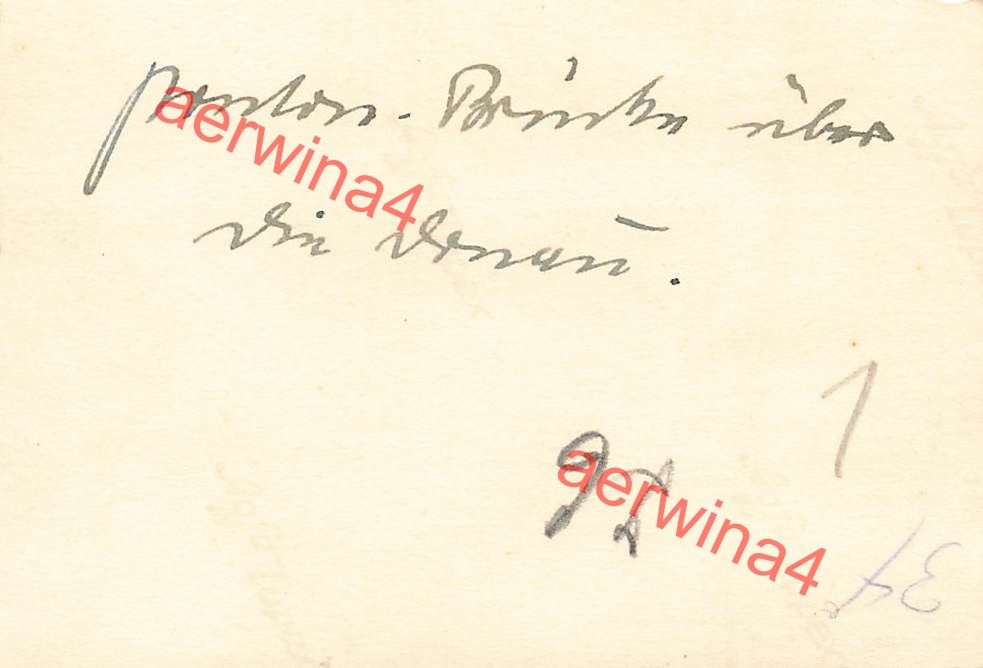 Ponton-Brücke über
die Donau.
1
aerwina4
aerwina4